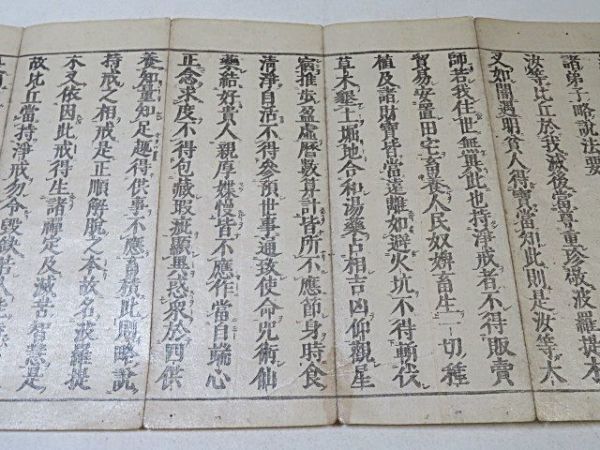 諸弟子略說法要
汝等比丘於我滅後當尊重珍敬波羅提木
叉如闇遇明貧人得寶當知此則是汝等大
師若我住世無異此也持淨戒者不得販賣
貿易安置田宅畜養人民奴婢畜生一切種
植及諸財寶皆當遠離如避火坑不得斬伐
草木墾土堀地合和湯藥占相吉凶仰觀星
宿推步盈虛曆數算計皆所不應節身時食
清淨自活不得參預世事通致使命呪術仙
藥結好貴人親厚媟慢皆不應作當自端心
正念求度不得包藏瑕疵顯異惑衆於四供
養知量知足趣得供事不應稸積此則略說
持戒之相戒是正順解脫之本故名波羅提
木叉依因此戒得生諸禪定及滅苦智慧是
故比丘當持淨戒勿令毀缺若人能